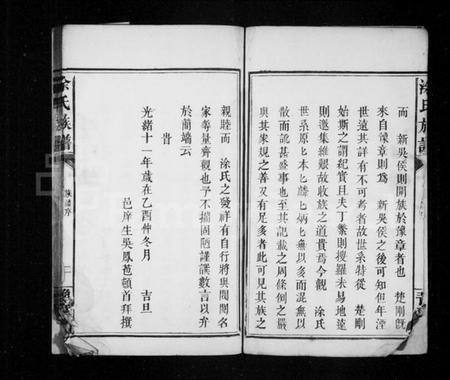 而　新吳侯則開族於豫章者也　楚剛旣
來自豫章則為　新吳侯之後可知但年湮
世遠其詳有不可考者故世系特從　楚剛
始斯之謂紀實且夫丁繁則搜羅未易地遠
則邀集維艱故收族之道貴焉今觀　涂氏
世系原原本本繩繩炳炳無以多而混無以
散而訛甚盛事也至其記載之周條例之嚴
與其家規之善又有足多者此可見其族之
親睦而　涂氏之發祥有自行將與閥閱名
家等量齊觀也予不揣固陋謹誤數言以弁
於簡端云
旹
光緒十一年歲在乙酉仲冬月　吉旦
邑庠生吳鳳苞頓首拜撰
涂氏族譜